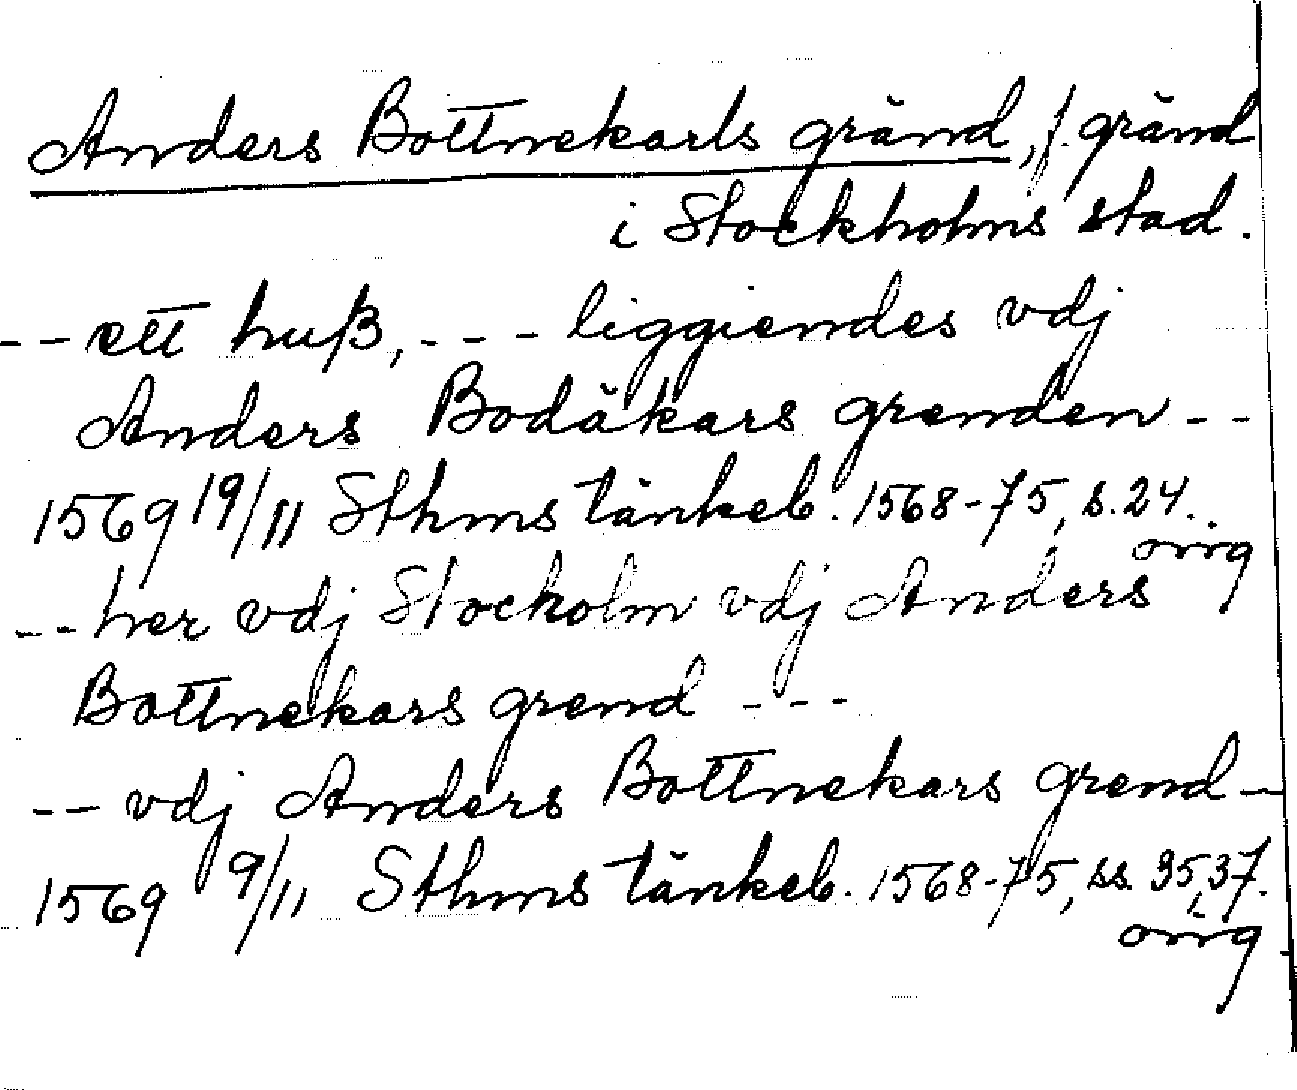 Anders Bottnekarls gränd, f. gränd
i Stockholms stad.
-- ett huß, --- liggiendes vdj
Anders Bodäkars grenden --
1569 19/11 Sthms tänkeb. 1568-75, s. 24.
orig
-- her vdj Stockolm vdj Anders
Bottnekars grend ---
-- vdj Anders Bottnekars grend -
1569 9/11 Sthms tänkeb. 1568-75, ss. 35, 37.
orig